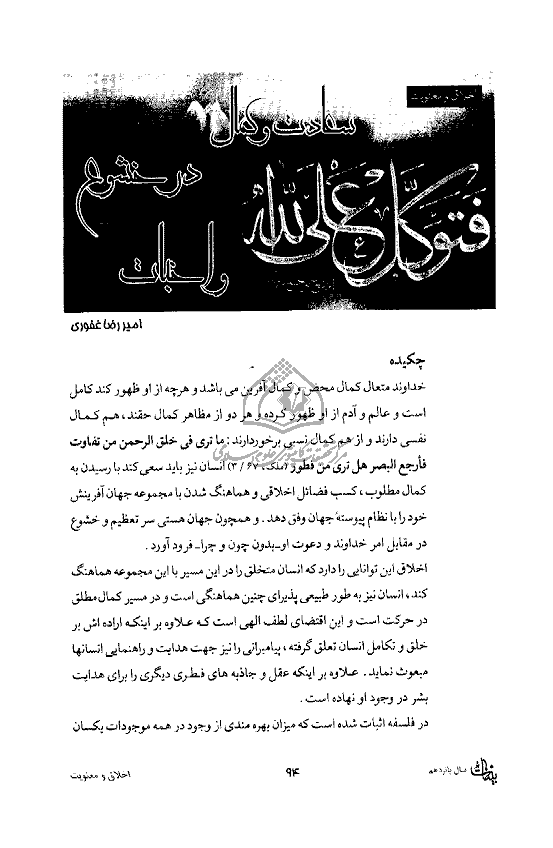 اخلاق و معنویت
سعادت و کمال
در خشوع
فتوکل علی الله
و اخبات
امیررضا غفوری
چکیده
خداوند متعال کمال محض و کمال آفرین می باشد و هرچه از او ظهور کند کامل
است و عالم و آدم از او ظهور کرده و هر دو از مظاهر کمال حقند، هم کمال
نفسی دارند و از هم کمال نسبی برخوردارند: ما تری فی خلق الرحمن من تفاوت
فأرجع البصر هل تری من فطور (ملک، ۶۷ / ۳) انسان نیز باید سعی کند با رسیدن به
کمال مطلوب، کسب فضائل اخلاقی و هماهنگ شدن با مجموعه جهان آفرینش
خود را با نظام پیوستهٔ جهان وفق دهد. و همچون جهان هستی سر تعظیم و خشوع
در مقابل امر خداوند و دعوت او-بدون چون و چرا- فرود آورد.
اخلاق این توانایی را دارد که انسان متخلق را در این مسیر با این مجموعه هماهنگ
کند، انسان نیز به طور طبیعی پذیرای چنین هماهنگی است و در مسیر کمال مطلق
در حرکت است و این اقتضای لطف الهی است که علاوه بر اینکه اراده اش بر
خلق و تکامل انسان تعلق گرفته، پیامبرانی را نیز جهت هدایت و راهنمایی انسانها
مبعوث نماید. علاوه بر اینکه عقل و جاذبه های فطری دیگری را برای هدایت
بشر در وجود او نهاده است.
در فلسفه اثبات شده است که میزان بهره مندی از وجود در همه موجودات یکسان
بینات سال پانزدهم
۹۴
اخلاق و معنویت